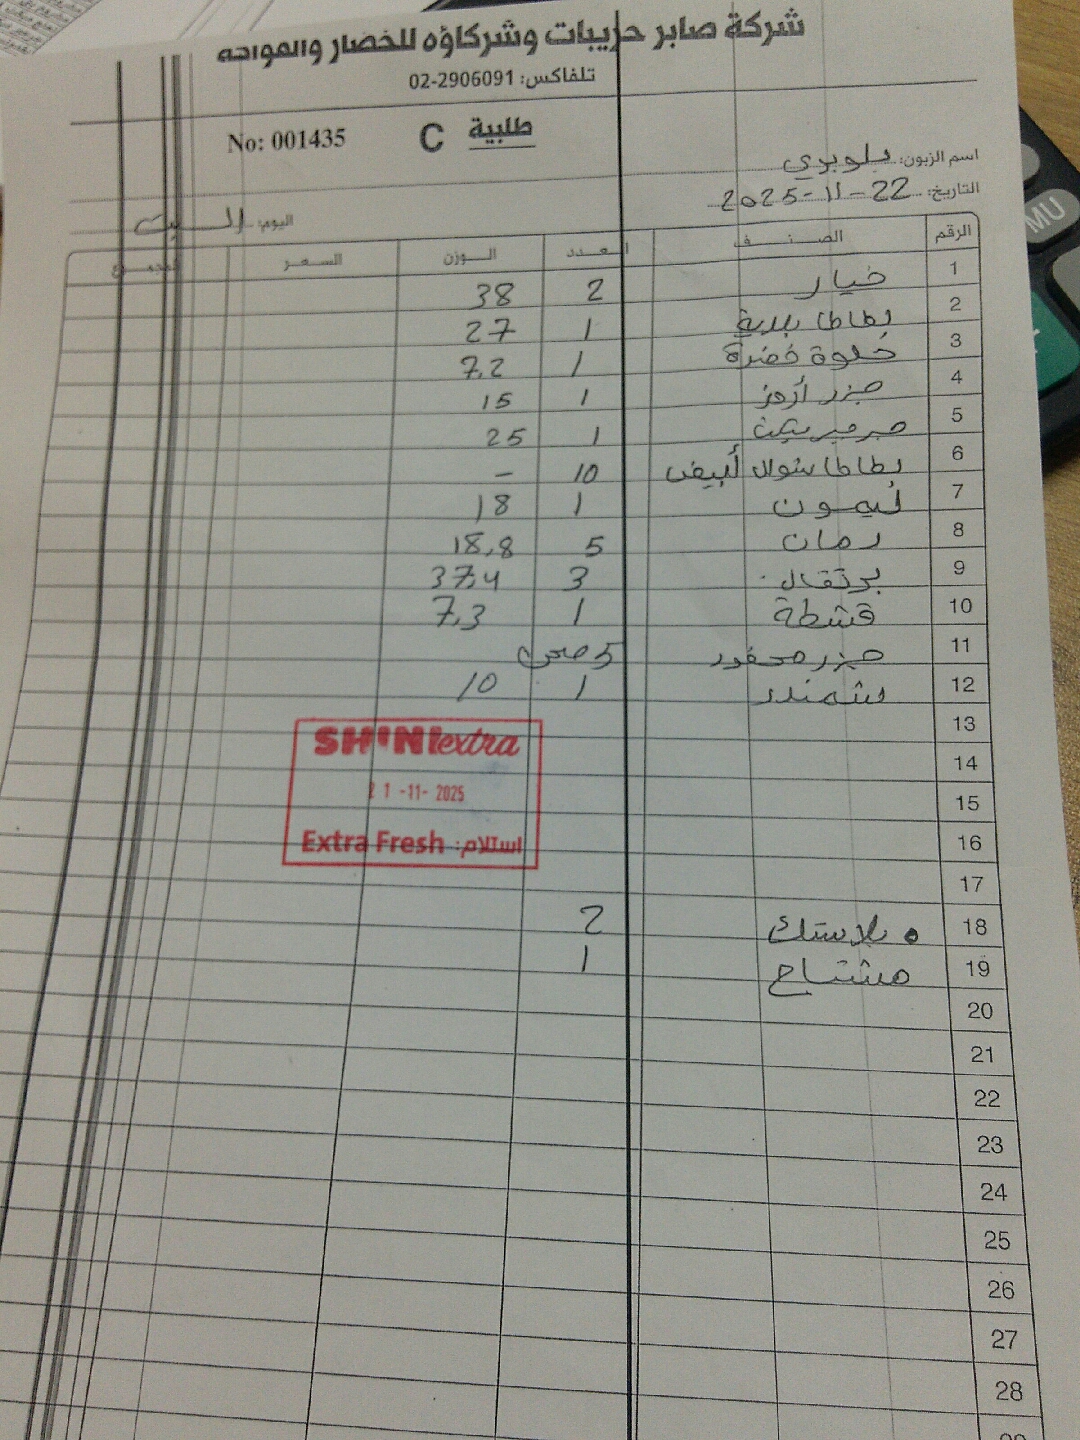 شركة صابر حريبات وشركاؤه للخضار والفواكه
تلفاكس: 02-2906091
No: 001435 C طلبية
اسم الزبون: بلوبري
التاريخ: 22-11-2025
اليوم: السبت
الرقم الصنف العدد الوزن السعر المجموع
1 خيار 2 38
2 بطاطا بلدية 1 27
3 حلوة خضرة 1 7.2
4 جزر أزعر 1 15
5 1 25
6 بطاطا شوال أبيض 10 -
7 ليمون 1 18
8 رمان 5 18,8
9 برتقال 3 37,4
10 قشطة 1 7,3
11 جزر محفور 5 صحن
12 شمندر 1 10
13
14
15
16
17
SHINI extra
21 -11- 2025
Extra Fresh استلام:
18 بلاستك 2
19 مشتاح 1
20
21
22
23
24
25
26
27
28
29
MU